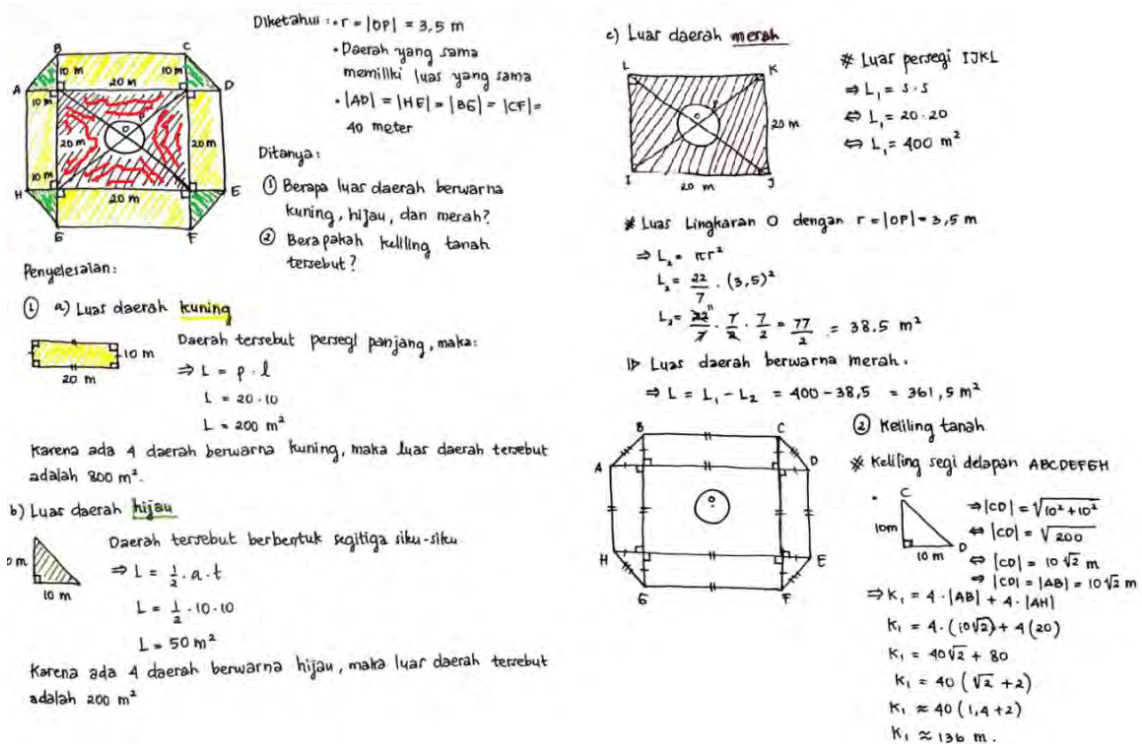 B C
10 m 10 m
A 20 m D
10 m
O P
20 m 20 m
10 m
H 20 m E
G F
Diketahui : • r = |OP| = 3,5 m
• Daerah yang sama
memiliki luas yang sama
• |AD| = |HE| = |BG| = |CF| =
40 meter
Ditanya:
① Berapa luas daerah berwarna
kuning, hijau, dan merah?
② Berapakah keliling tanah
tersebut?
Penyelesaian:
① a) Luas daerah kuning
10 m
20 m
Daerah tersebut persegi panjang, maka:
⇒ L = p . l
L = 20 . 10
L = 200 m²
Karena ada 4 daerah berwarna kuning, maka luas daerah tersebut
adalah 800 m².
b) Luas daerah hijau
0 m
10 m
Daerah tersebut berbentuk segitiga siku-siku
⇒ L = 1/2 . a . t
L = 1/2 . 10 . 10
L = 50 m²
Karena ada 4 daerah berwarna hijau, maka luas daerah tersebut
adalah 200 m²
c) Luas daerah merah
L K
O P
20 m
I J
20 m
* Luas persegi IJKL
⇒ L₁ = s . s
⇔ L₁ = 20 . 20
⇔ L₁ = 400 m²
* Luas Lingkaran O dengan r = |OP| = 3,5 m
⇒ L₂ = πr²
L₂ = 22/7 . (3,5)²
L₂ = 22/7 . 7/2 . 7/2 = 77/2 = 38.5 m²
Luas daerah berwarna merah.
⇒ L = L₁ - L₂ = 400 - 38,5 = 361,5 m²
B C
A D
O
H E
G F
② Keliling tanah
* Keliling segi delapan ABCDEFGH
C
10m
10 m D
⇒ |CD| = √10² + 10²
⇔ |CD| = √200
⇔ |CD| = 10√2 m
⇔ |CD| = |AB| = 10√2 m
⇒ K₁ = 4 . |AB| + 4 . |AH|
K₁ = 4 . (10√2) + 4 (20)
K₁ = 40√2 + 80
K₁ = 40 (√2 + 2)
K₁ ≈ 40 (1,4 + 2)
K₁ ≈ 136 m.